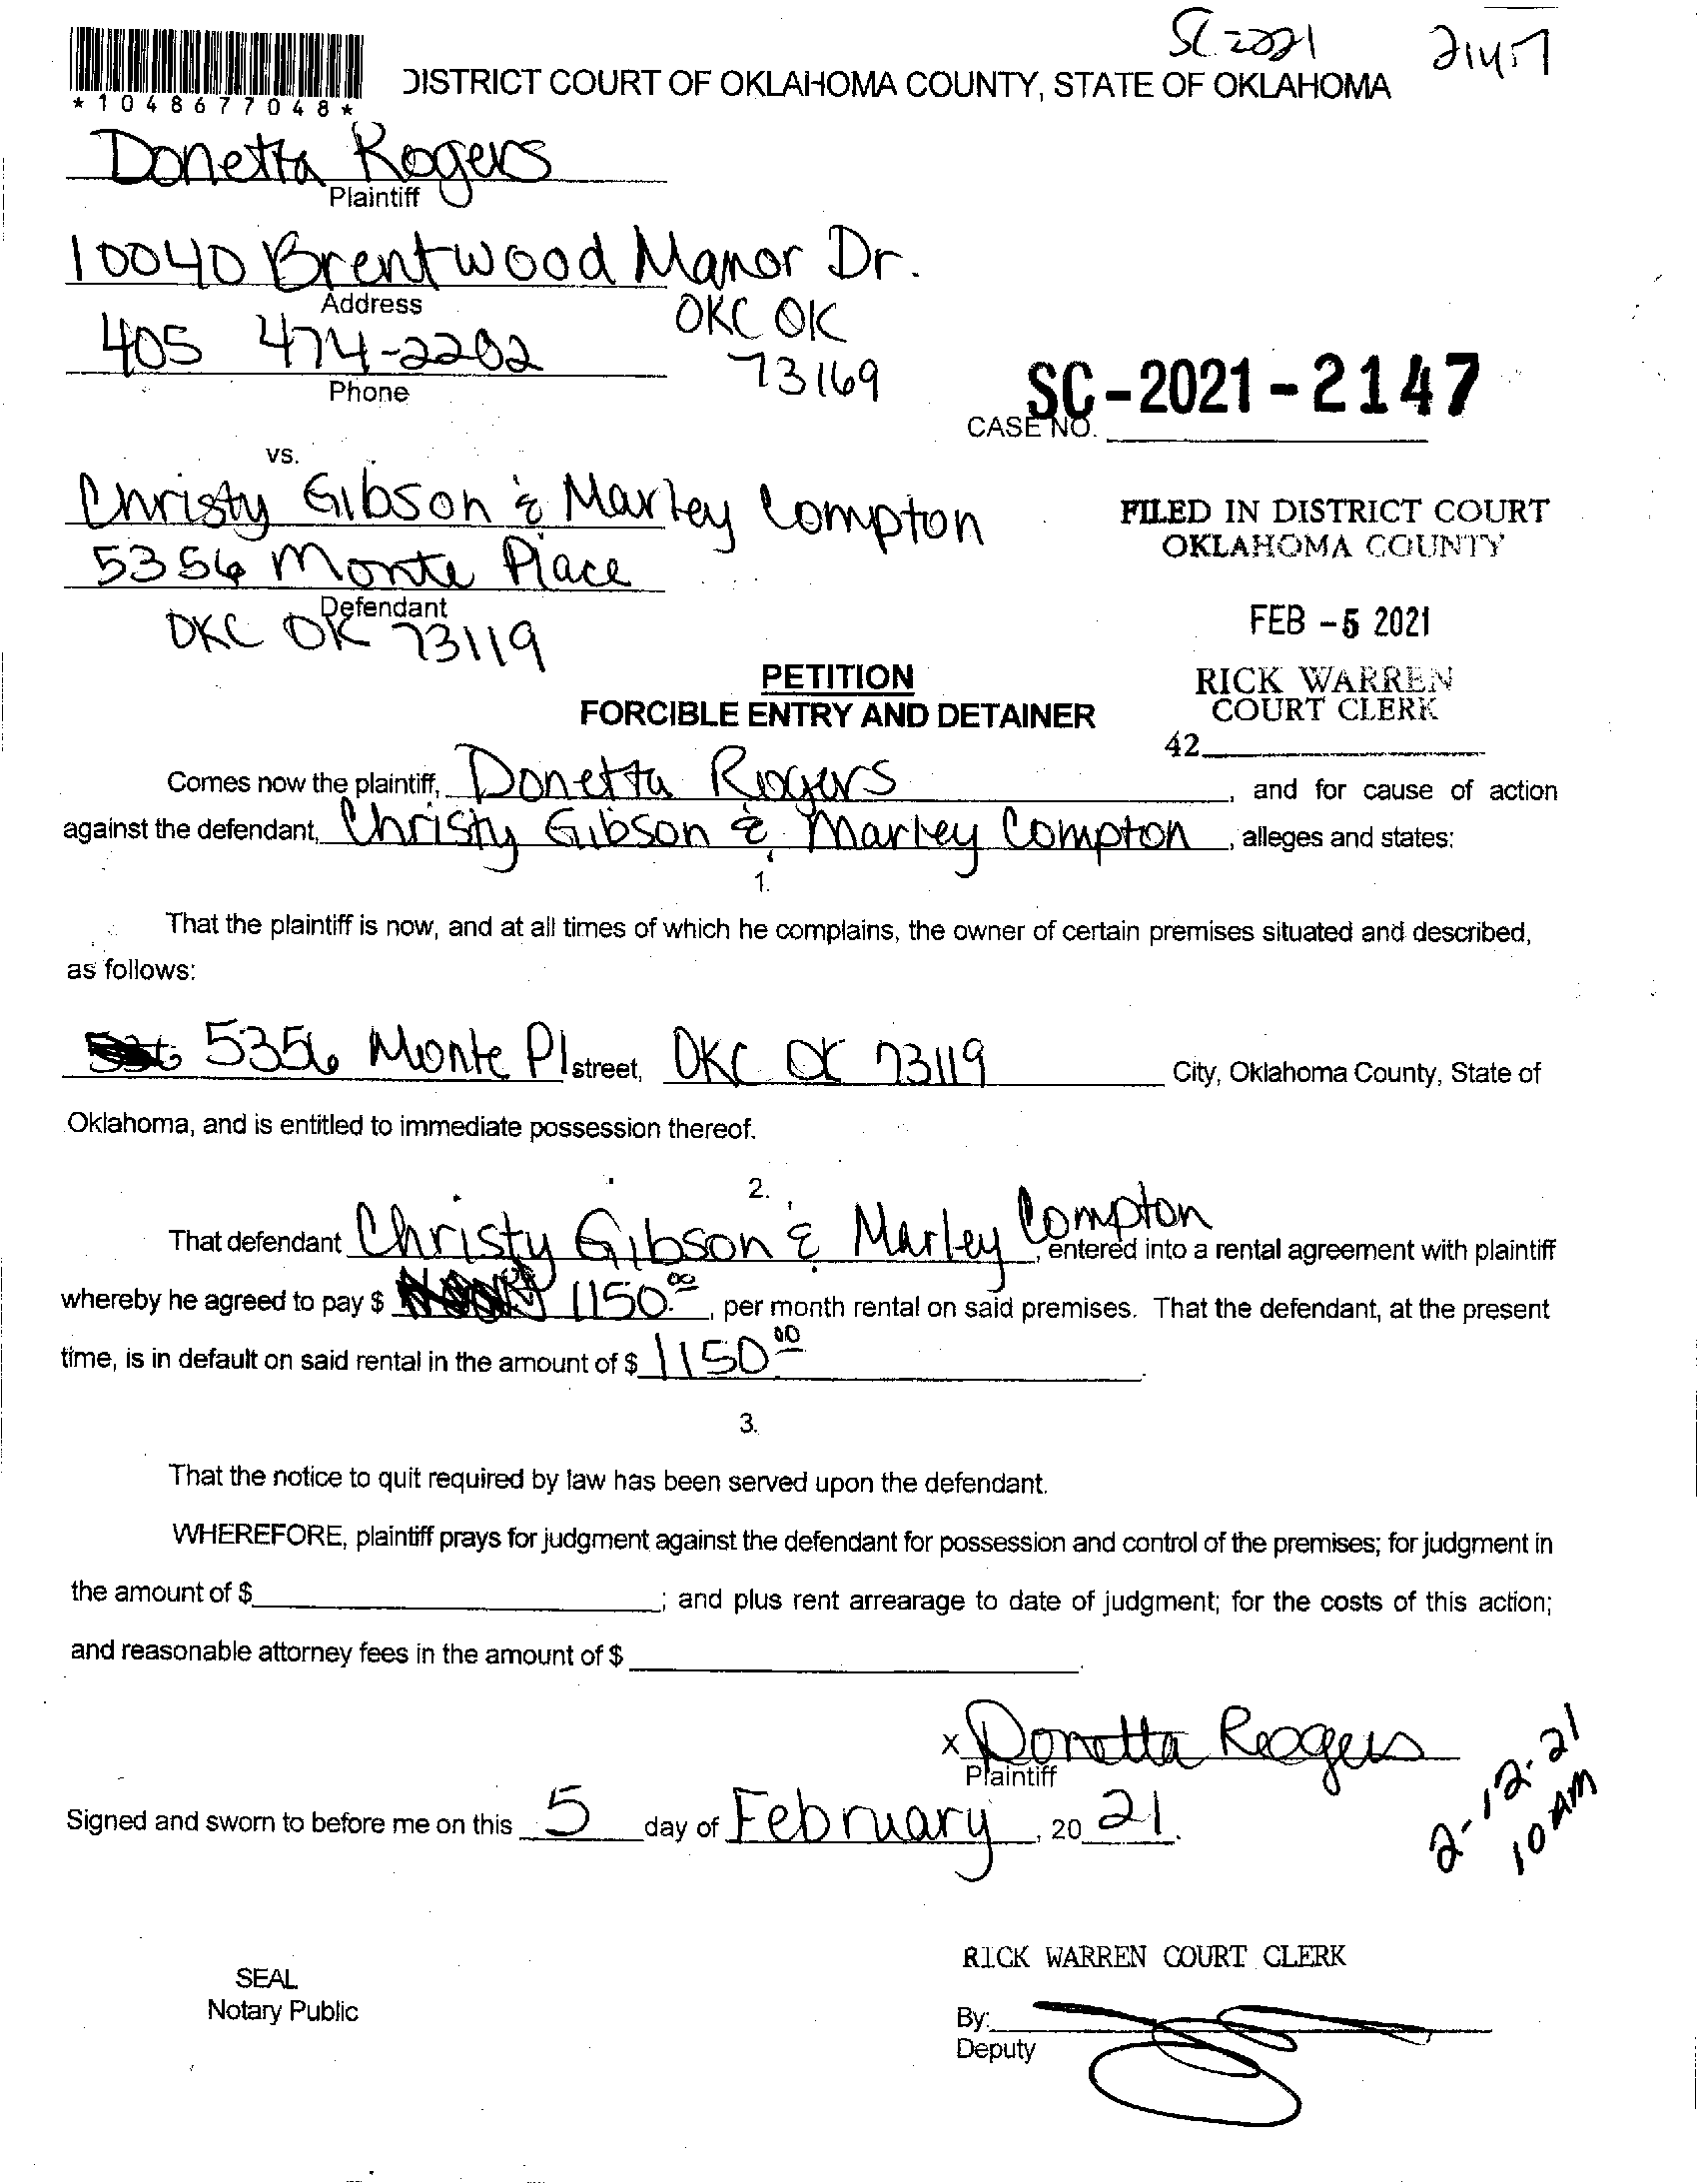 SC 2021 2147
*1048677048*
DISTRICT COURT OF OKLAHOMA COUNTY, STATE OF OKLAHOMA
Donetta Rogers
Plaintiff
10040 Brentwood Manor Dr.
Address
OKC OK
405 474-2202
73169
Phone
SC-2021-2147
CASE NO.
vs.
Christy Gibson & Marley Compton
5356 Monte Place
Defendant
OKC OK 73119
FILED IN DISTRICT COURT
OKLAHOMA COUNTY
FEB -5 2021
RICK WARREN
COURT CLERK
42
PETITION
FORCIBLE ENTRY AND DETAINER
Comes now the plaintiff, Donetta Rogers, and for cause of action
against the defendant, Christy Gibson & Marley Compton, alleges and states:
1.
That the plaintiff is now, and at all times of which he complains, the owner of certain premises situated and described,
as follows:
5356 Monte Pl street, OKC OK 73119 City, Oklahoma County, State of
Oklahoma, and is entitled to immediate possession thereof.
2.
That defendant Christy Gibson & Marley Compton, entered into a rental agreement with plaintiff
whereby he agreed to pay $ 1150.00, per month rental on said premises. That the defendant, at the present
time, is in default on said rental in the amount of $ 1150.00.
3.
That the notice to quit required by law has been served upon the defendant.
WHEREFORE, plaintiff prays for judgment against the defendant for possession and control of the premises; for judgment in
the amount of $ ; and plus rent arrearage to date of judgment; for the costs of this action;
and reasonable attorney fees in the amount of $ .
x Donetta Rogers
Plaintiff
Signed and sworn to before me on this 5 day of February, 20 21.
2-12-21
10 AM
RICK WARREN COURT CLERK
SEAL
Notary Public
By:
Deputy